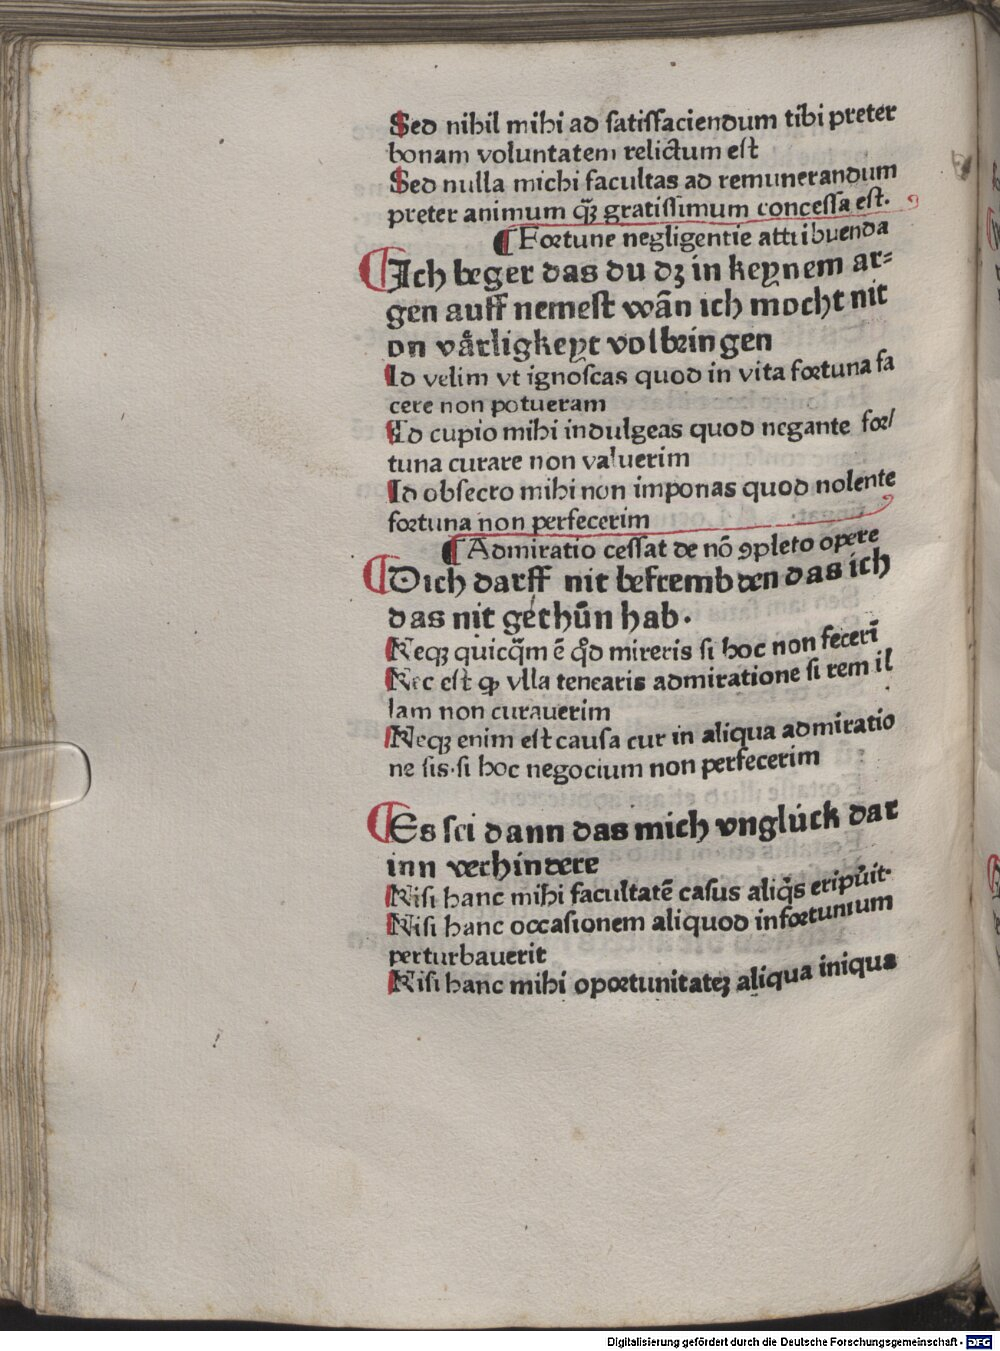 Sed nihil mihi ad ſatiſfaciendum tibi preter
bonam voluntatem relictum eſt
Sed nulla michi facultas ad remunerandum
preter animum qȝ̃ gratiſſimum conceſſa eſt.
¶ Foꝛtune negligentie attribuenda
¶ Ich beger das du dȝ in keynem ar⸗
gen auff nemeſt wañ ich mocht nit
on vaͤrligkeyt volbꝛingen
Id velim vt ignoſcas quod in vita foꝛtuna fa
cere non potueram
Id cupio mihi indulgeas quod negante foꝛ/
tuna curare non valuerim
Id obſecro mihi non imponas quod nolente
foꝛtuna non perfecerim
¶ Admiratio ceſſat de nõ ꝯpleto opere
¶ Dich darff nit befrembden das ich
das nit gethůn hab.
Neqȝ quicq̃m ē qd̕ mireris ſi hoc non fecerī
Nec eſt ꝙ vlla tenearis admiratione ſi rem il
lam non curauerim
Neqȝ enim eſt cauſa cur in aliqua admiratio
ne ſis·ſi hoc negocium non perfecerim
¶ Es ſei dann das mich vnglúck dar
inn verhindere
Niſi hanc mihi facultatē caſus aliq̃s eripu̍it·
Niſi hanc occaſionem aliquod infoꝛtunium
perturbauerit
Niſi hanc mihi opoꝛtunitateȝ aliqua iniqua
Digitalisierung gefördert durch die Deutsche Forschungsgemeinschaft - DFG